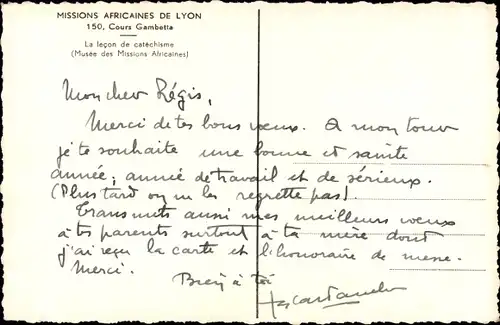 MISSIONS AFRICAINES DE LYON
150, Cours Gambetta
La leçon de catéchisme
(Musée des Missions Africaines)
Mon cher Régis,
Merci de tes bons vœux. A mon tour
je te souhaite une bonne et sainte
année; année de travail et de sérieux.
(Plus tard on ne les regrette pas).
Transmets aussi mes meilleurs vœux
à tes parents surtout à ta mère dont
j'ai reçu la carte et l'honoraire de messe.
Merci.
Bien à toi